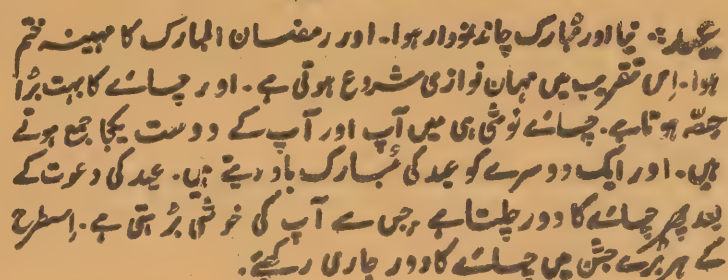 عید:۔ نیا اور مُبارک چاند نمودار ہوا۔ اور رمضان المبارک کا مہینہ ختم
ہوا۔ اِس تقریب میں مہمان نوازی شروع ہوتی ہے۔ اور چائے کا بہت بڑا
حصّہ ہوتا ہے۔ چائے نوشی ہی میں آپ اور آپ کے دوست یکجا جمع ہوتے
ہیں۔ اور ایک دوسرے کو عید کی مُبارک باد دیتے ہیں۔ عید کی دعوت کے
بعد پھر چائے کا دور چلتا ہے جس سے آپ کی خوشی بڑہتی ہے۔ اِسطرح
کے ہر بڑے جشن میں چائے کا دور جاری رکھئے۔